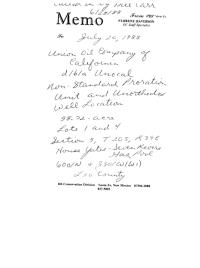 Memo
From
FLORENE DAVIDSON
OC Staff Specialist
To July 20, 1988
Union Oil Company of
California
d/b/a Unocal
Non-Standard Proration
Unit and Unorthodox
Well Location
98.72-acre
Lots 1 and 4
Section 5, T 20S, R 39E
House Yates-Seven Rivers
Gas Pool
600/N & 330/W(W1)
Lea County
Oil Conservation Division Santa Fe, New Mexico 87504-2088
827-5803